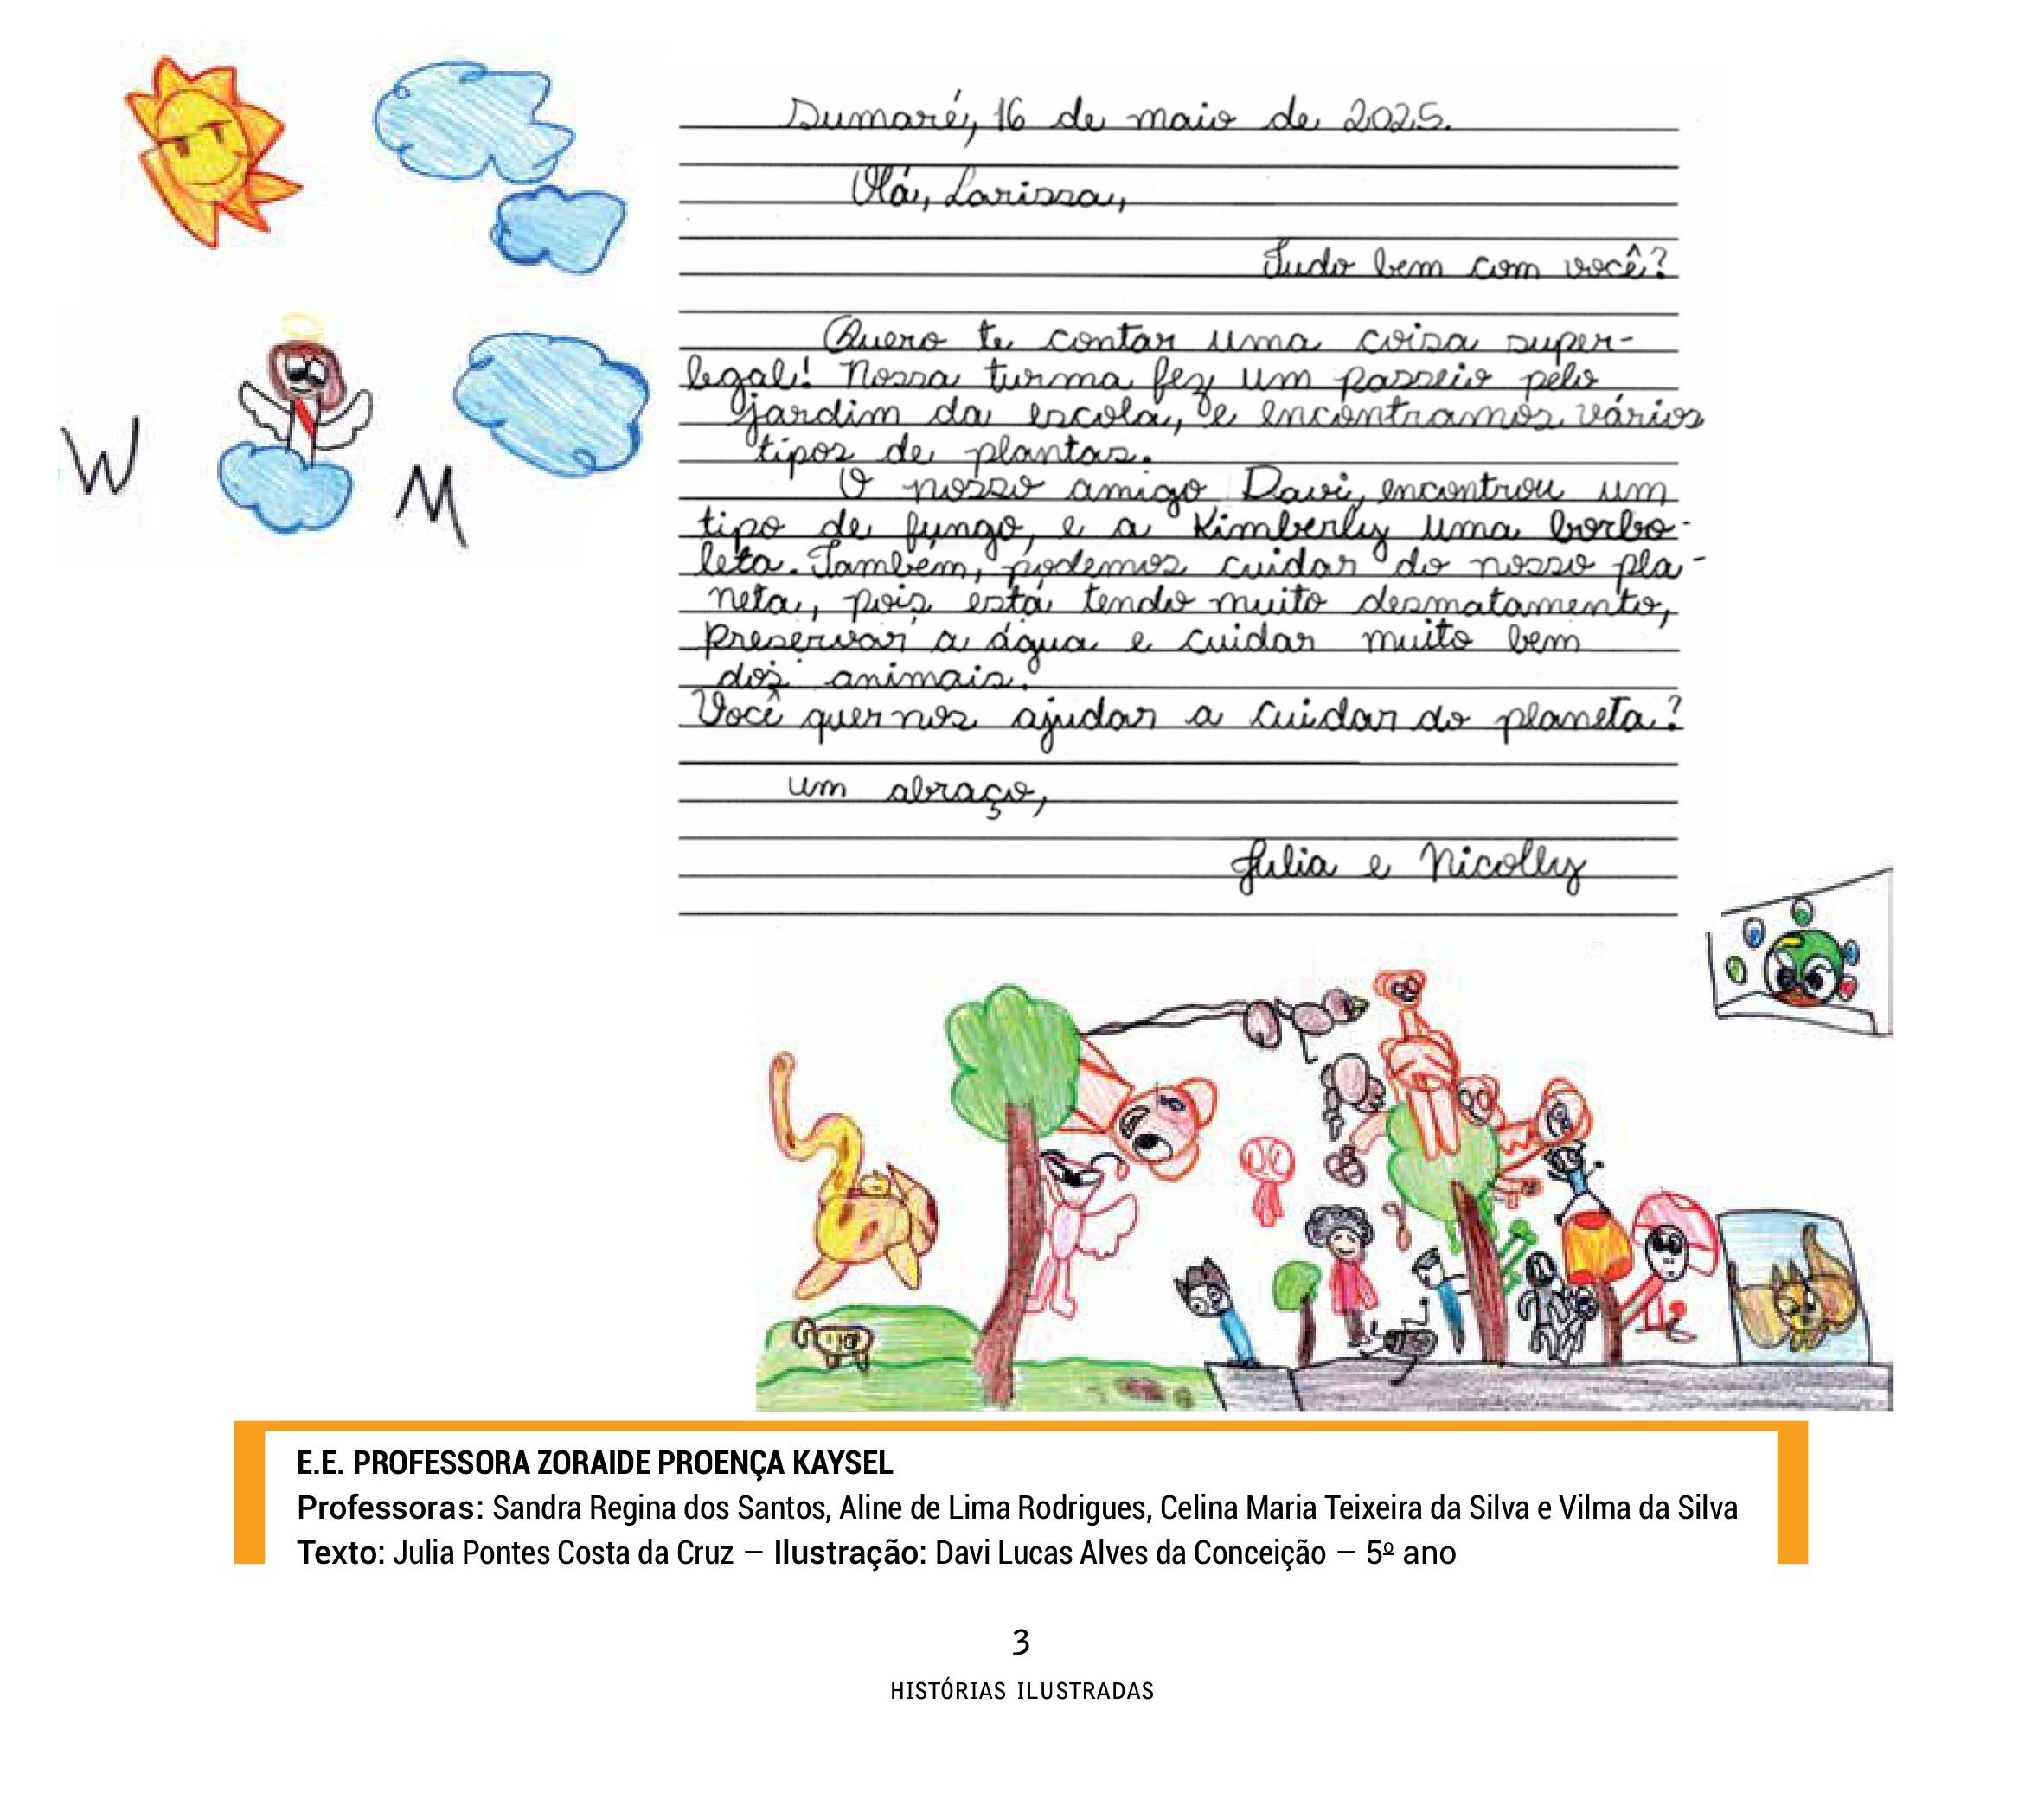 Sumaré, 16 de maio de 2025.
Olá, Larissa,
Tudo bem com você?
Quero te contar uma coisa super-
legal! Nossa turma fez um passeio pelo
jardim da escola, e encontramos vários
tipos de plantas.
O nosso amigo Davi, encontrou um
tipo de fungo, e a Kimberly uma borbo-
leta. Também, podemos cuidar do nosso pla-
neta, pois está tendo muito desmatamento,
preservar a água e cuidar muito bem
dos animais.
Você quer nos ajudar a cuidar do planeta?
um abraço,
Julia e Nicolly
W
M
E.E. PROFESSORA ZORAIDE PROENÇA KAYSEL
Professoras: Sandra Regina dos Santos, Aline de Lima Rodrigues, Celina Maria Teixeira da Silva e Vilma da Silva
Texto: Julia Pontes Costa da Cruz — Ilustração: Davi Lucas Alves da Conceição — 5º ano
3
HISTÓRIAS ILUSTRADAS